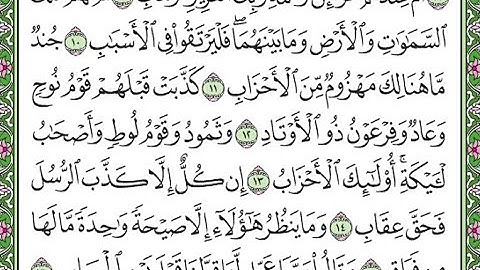 ٱلسَّمَٰوَٰتِ وَٱلْأَرْضِ وَمَا بَيْنَهُمَا ۖ فَلْيَرْتَقُوا۟ فِى ٱلْأَسْبَٰبِ ١٠ جُندٌ
مَّا هُنَالِكَ مَهْزُومٌ مِّنَ ٱلْأَحْزَابِ ١١ كَذَّبَتْ قَبْلَهُمْ قَوْمُ نُوحٍ
وَعَادٌ وَفِرْعَوْنُ ذُو ٱلْأَوْتَادِ ١٢ وَثَمُودُ وَقَوْمُ لُوطٍ وَأَصْحَٰبُ
لْـَٔيْكَةِ ۚ أُو۟لَٰٓئِكَ ٱلْأَحْزَابُ ١٣ إِن كُلٌّ إِلَّا كَذَّبَ ٱلرُّسُلَ
فَحَقَّ عِقَابِ ١٤ وَمَا يَنظُرُ هَٰٓؤُلَآءِ إِلَّا صَيْحَةً وَٰحِدَةً مَّا لَهَا